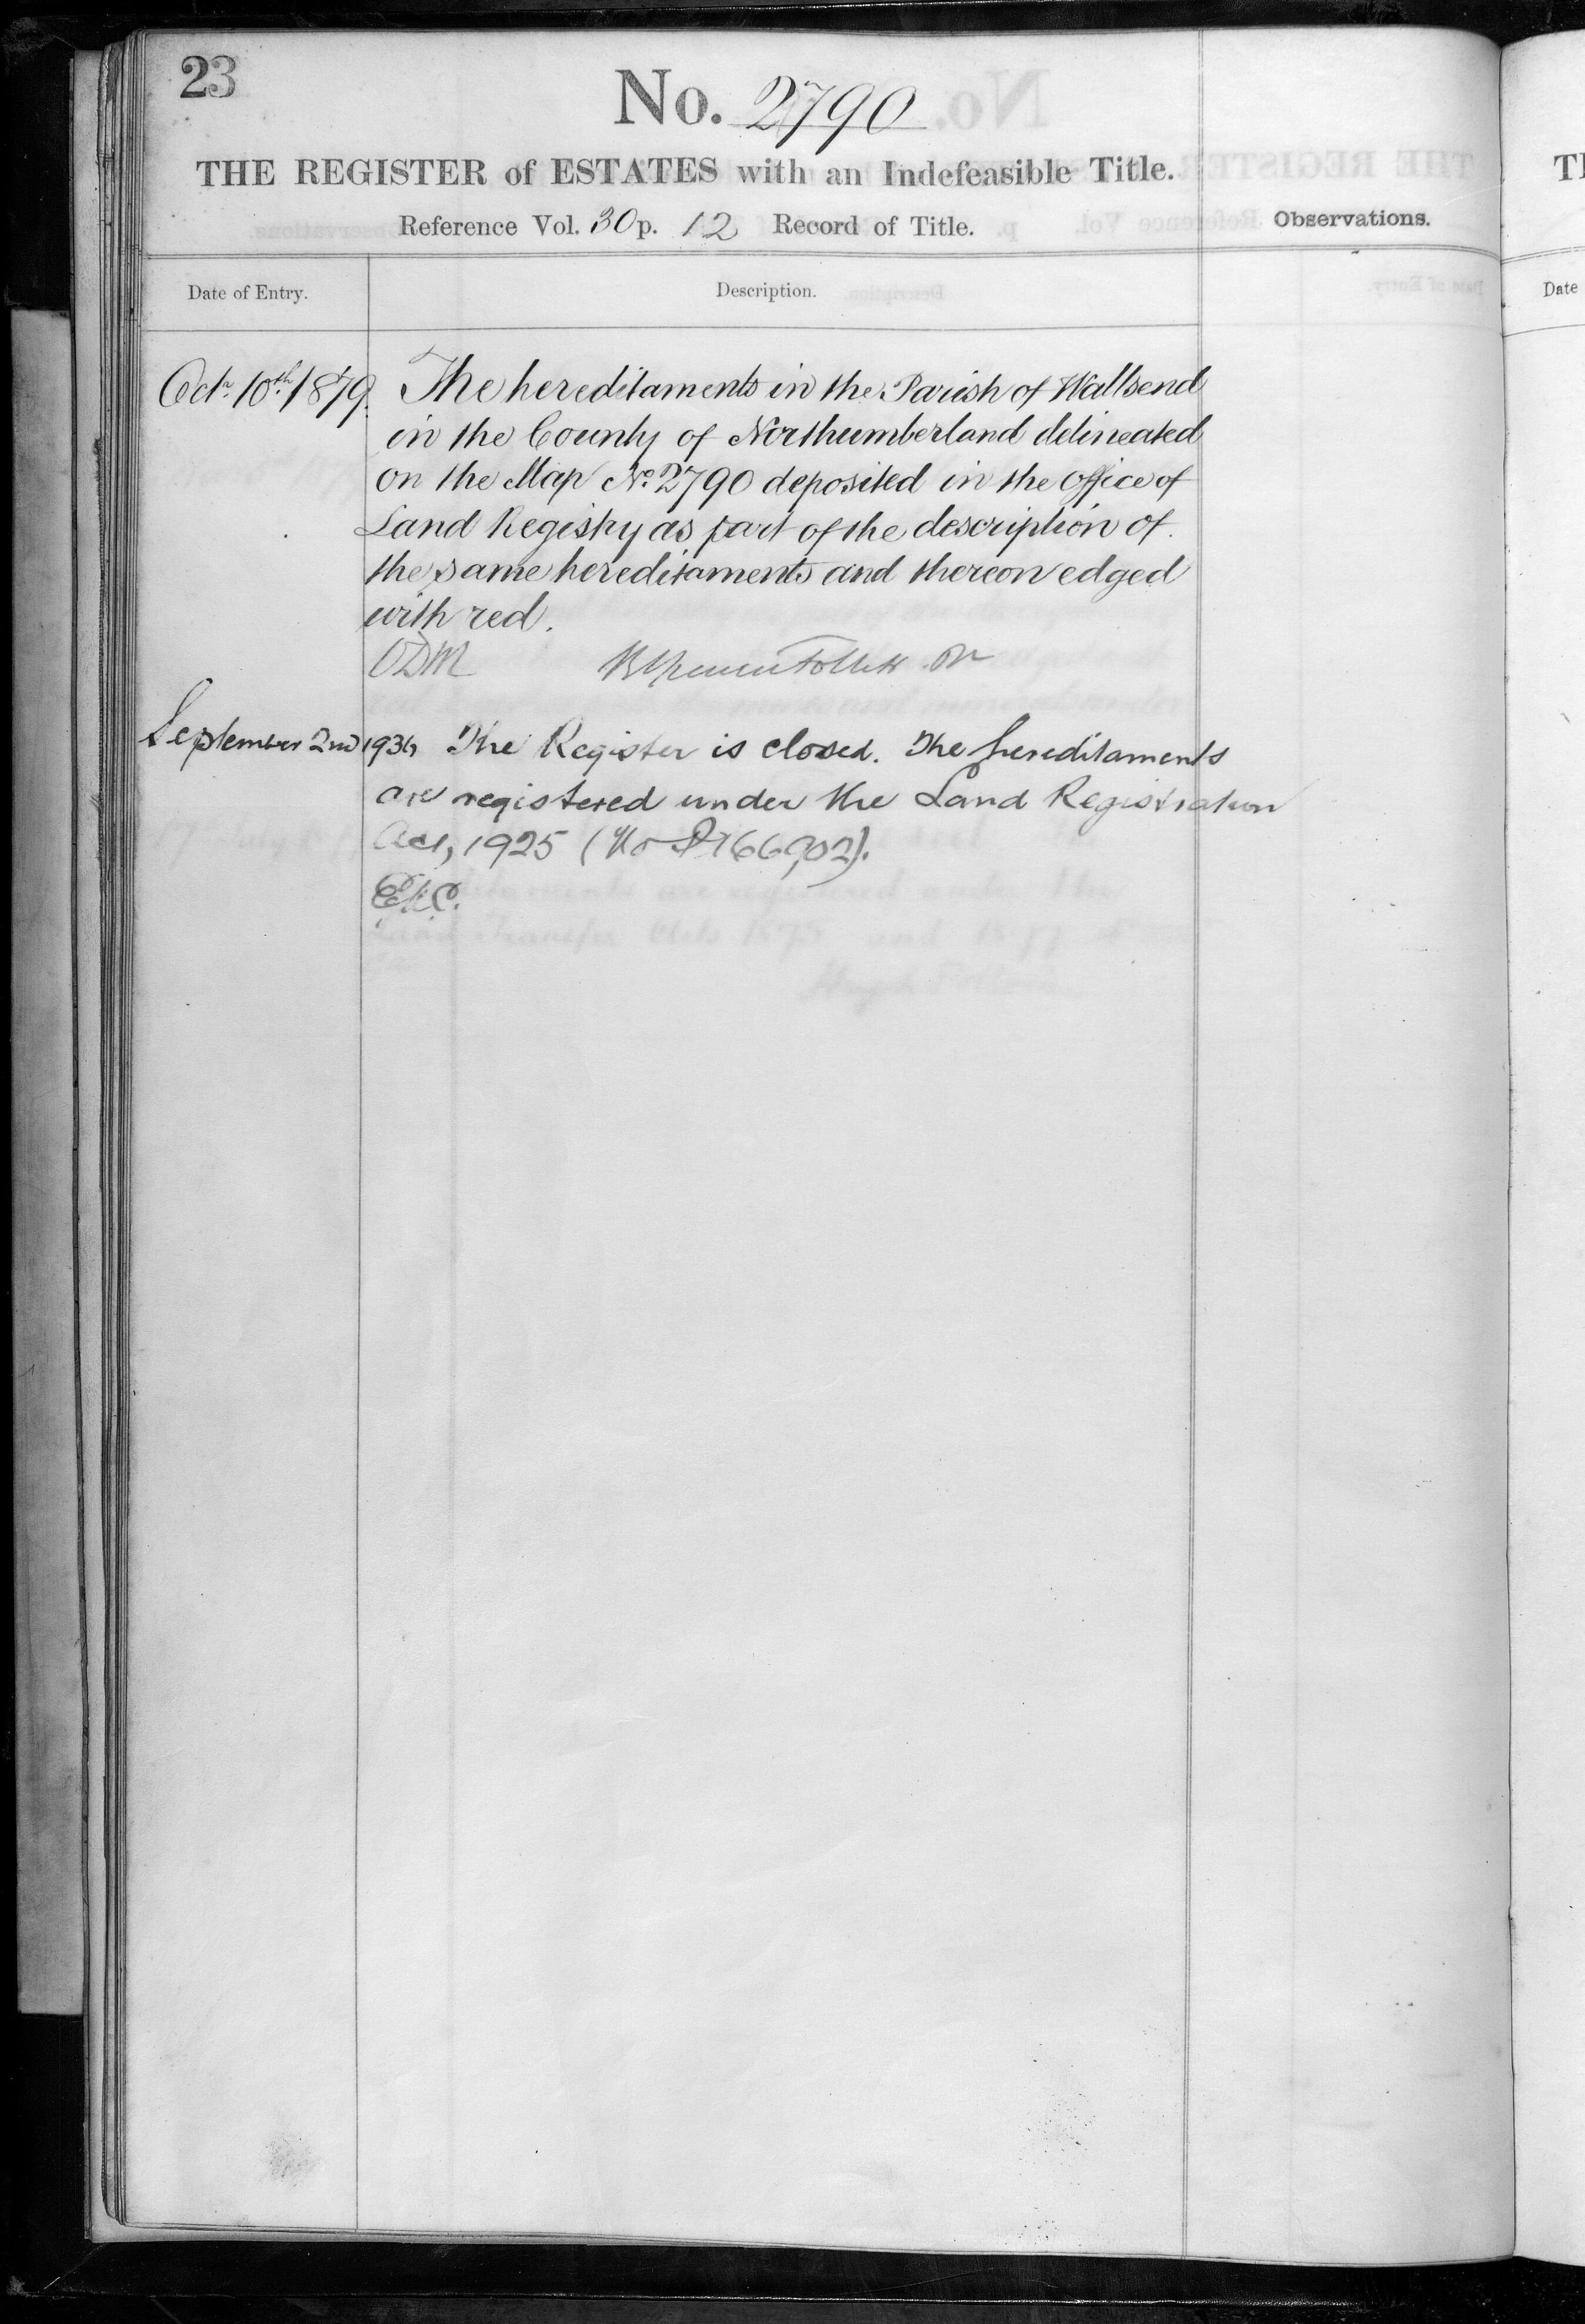 23
No. 2790
THE REGISTER of ESTATES with an Indefeasible Title.
Reference Vol. 30 p. 12 Record of Title.
Observations.
Date of Entry.
Description.
Octr. 10th. 1879. The hereditaments in the Parish of Wallsend
in the County of Northumberland delineated
on the Map No. 2790 deposited in the office of
Land Registry as part of the description of
the same hereditaments and thereon edged
with red.
ODM
September 2nd 1936 The Register is closed. The hereditaments
are registered under the Land Registration
Act, 1925 (No P166902).
Date